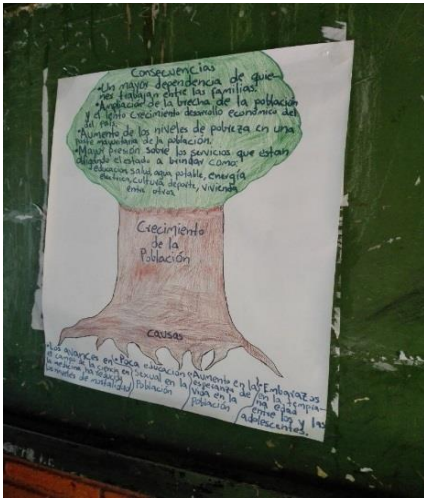 Consecuencias
•Un mayor dependencia de quie-
nes trabajan entre las familias.
•Ampliación de la brecha de la población
y el lento crecimiento desarrollo económico del
país.
•Aumento de los niveles de pobreza en una
parte mayoritaria de la población.
•Mayor presión sobre los servicios que estan
obligando el estado a brindar como:
•educación, salud, agua potable, energía
electrica, cultura, deporte, vivienda
entre otros.
Crecimiento
de la
Población
causas
•Los avances en
el campo de la ciencia en
la medicina ha reducido
los niveles de mortalidad
•Poca educación
sexual en la
Población
•Aumento en la
esperanza de
vida en la
población
•Embarazos
en la tempra-
na edad
entre los y las
adolescentes.